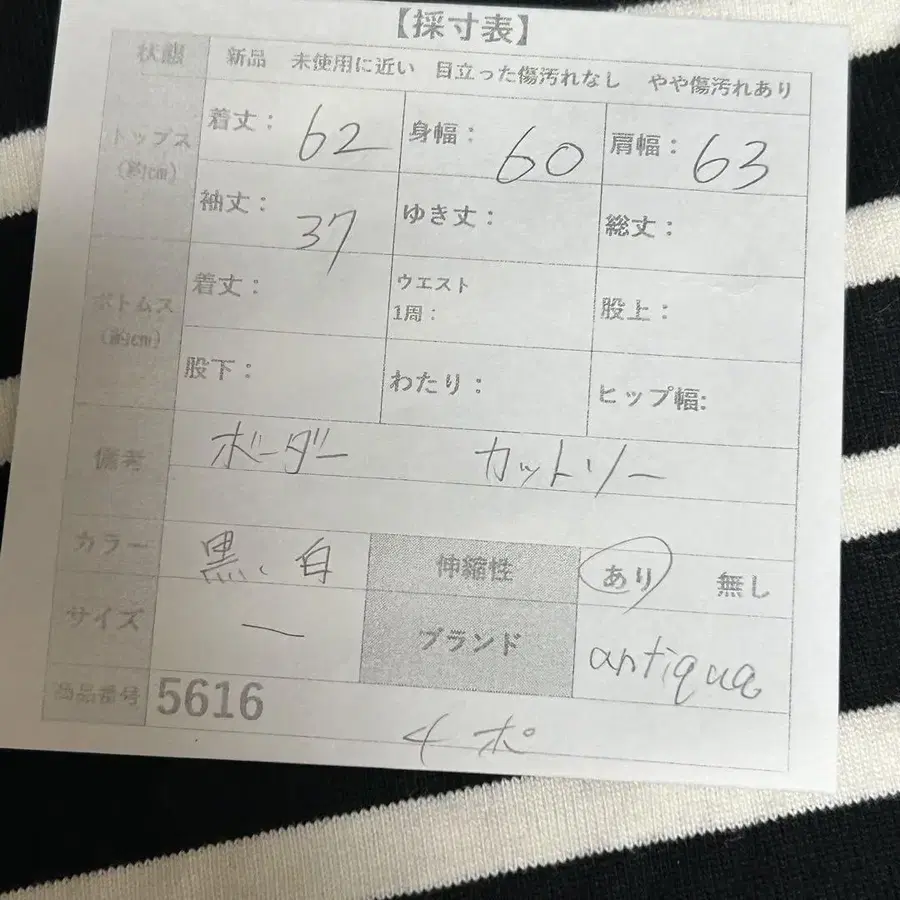 【採寸表】
状態 新品 未使用に近い 目立った傷汚れなし やや傷汚れあり
トップス (約cm) 着丈: 62 身幅: 60 肩幅: 63
袖丈: 37 ゆき丈: 総丈:
ボトムス (約cm) 着丈: ウエスト 1周: 股上:
股下: わたり: ヒップ幅:
備考 ボーダー カットソー
カラー 黒、白 伸縮性 あり 無し
サイズ ー ブランド antiqua
商品番号 5616
4 ポ